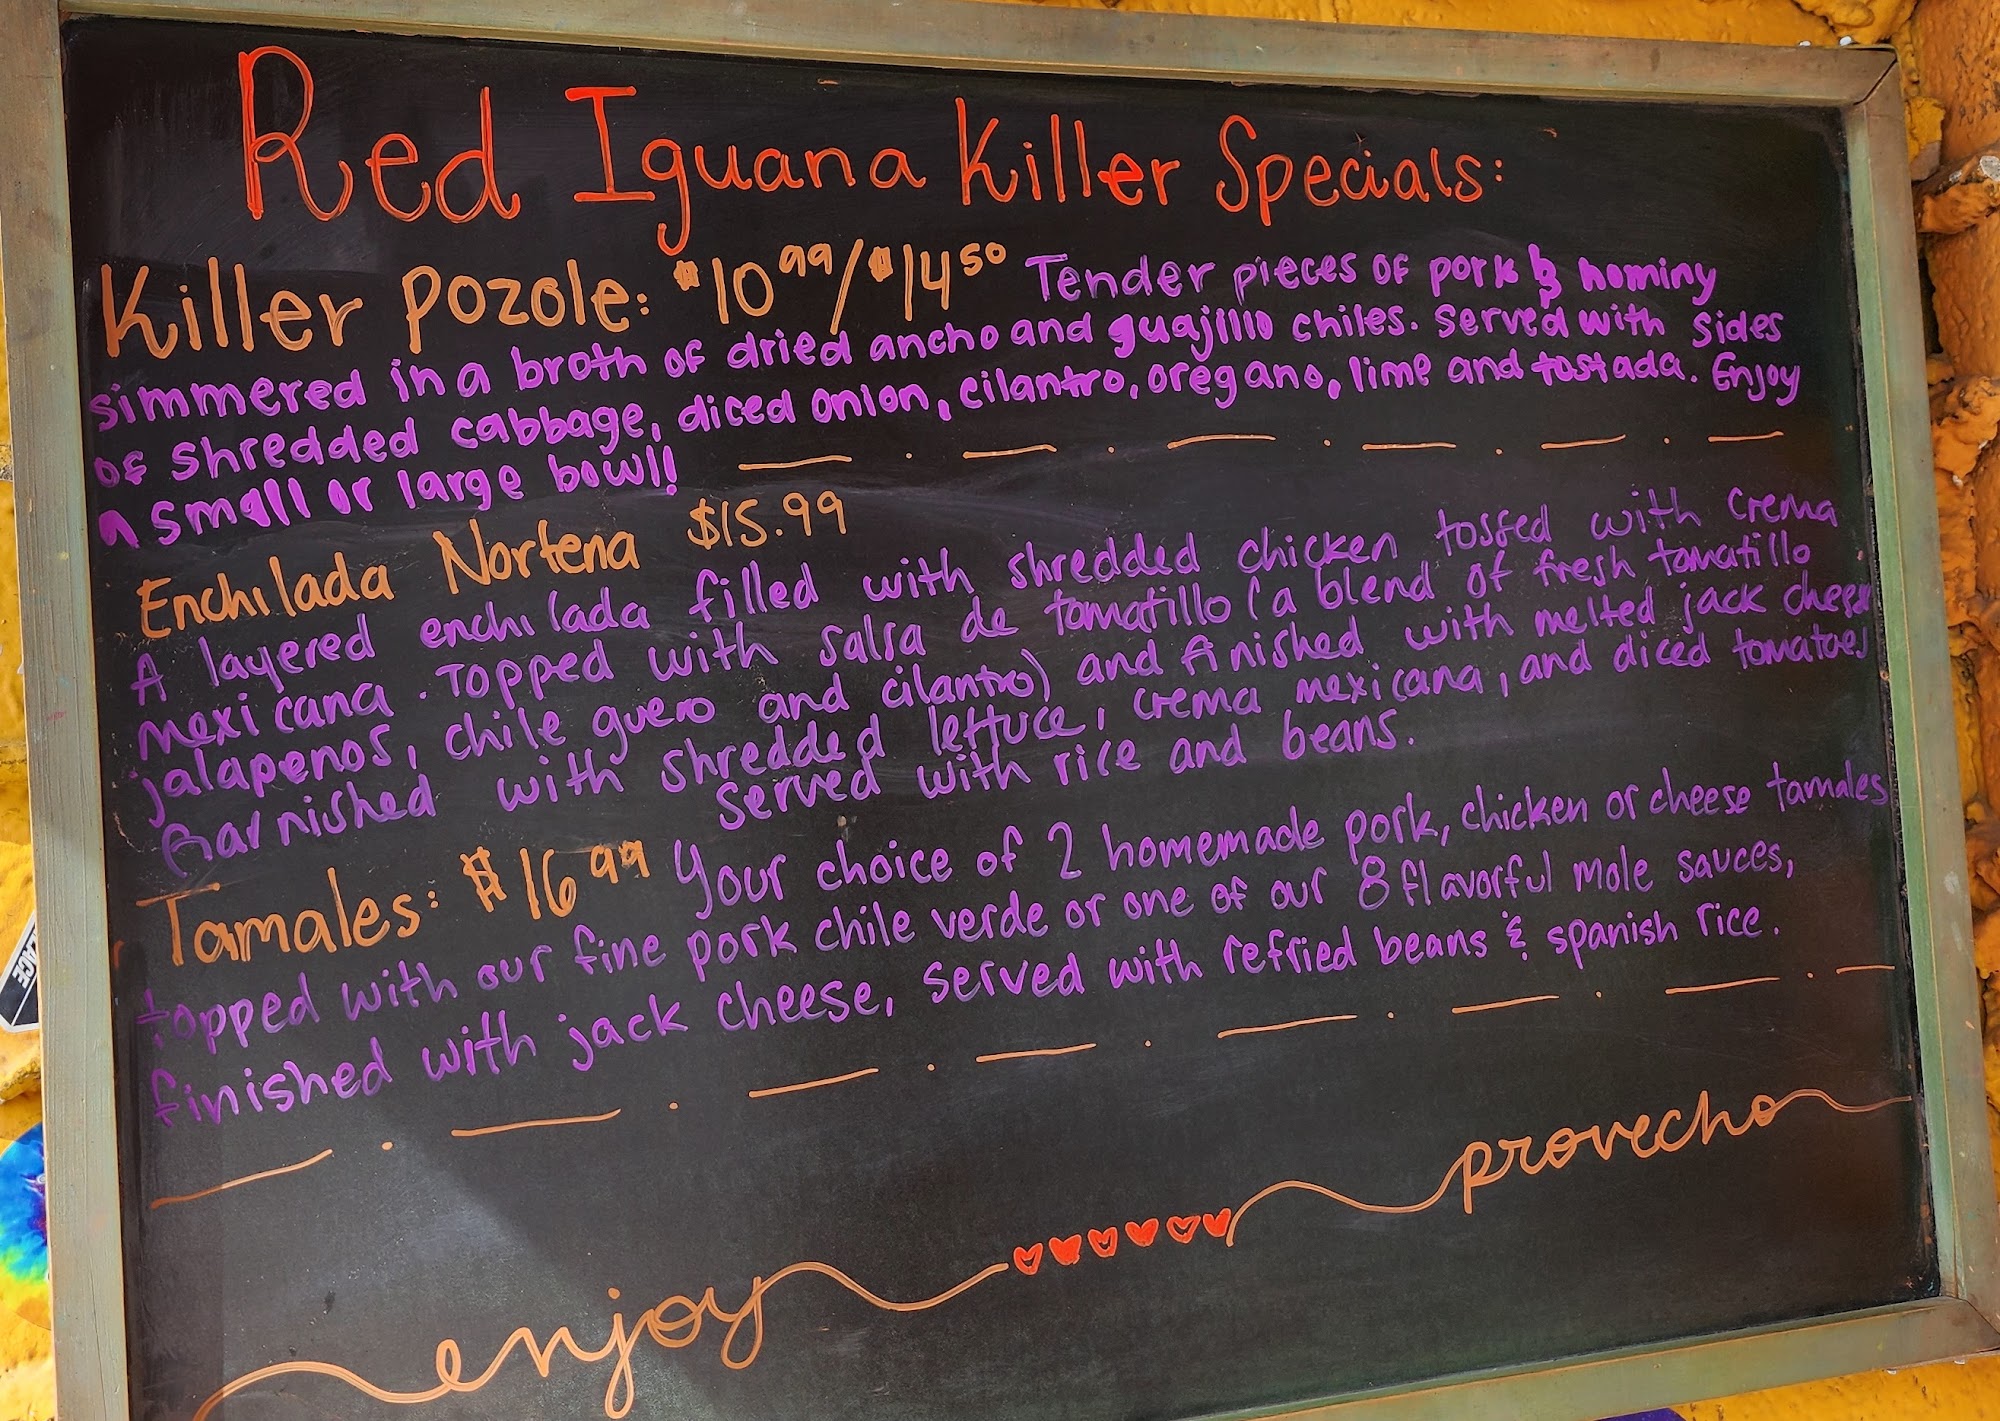 Red Iguana Killer Specials:
Killer Pozole: $10.99/$14.50 Tender pieces of pork & hominy
simmered in a broth of dried ancho and guajillo chiles. Served with sides
of shredded cabbage, diced onion, cilantro, oregano, lime and tostada. Enjoy
a small or large bowl!
Enchilada Nortena $15.99
A layered enchilada filled with shredded chicken tossed with crema
mexicana. Topped with salsa de tomatillo (a blend of fresh tomatillo
jalapenos, chile guero and cilantro) and finished with melted jack cheese
Garnished with shredded lettuce, crema mexicana, and diced tomatoes
served with rice and beans.
Tamales: $16.99 Your choice of 2 homemade pork, chicken or cheese tamales
topped with our fine pork chile verde or one of our 8 flavorful mole sauces,
finished with jack cheese, served with refried beans & spanish rice.
enjoy provecho